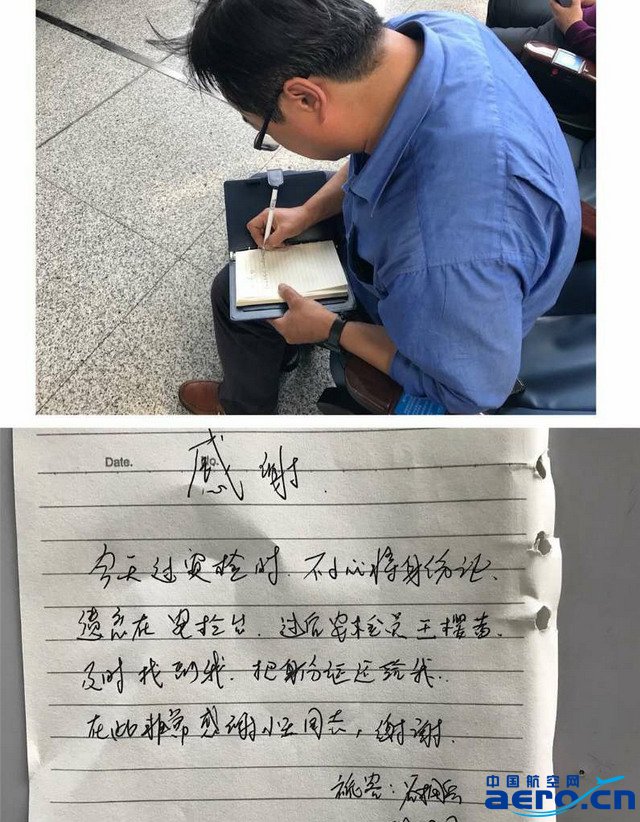 Date.
No.
感谢
今天过安检时.不小心将身份证.
遗忘在安检台.过后安检员王
及时找到我.把身份证还给我.
在此非常感谢小王同志,谢谢.
旅客:
中国航空网
aero.cn